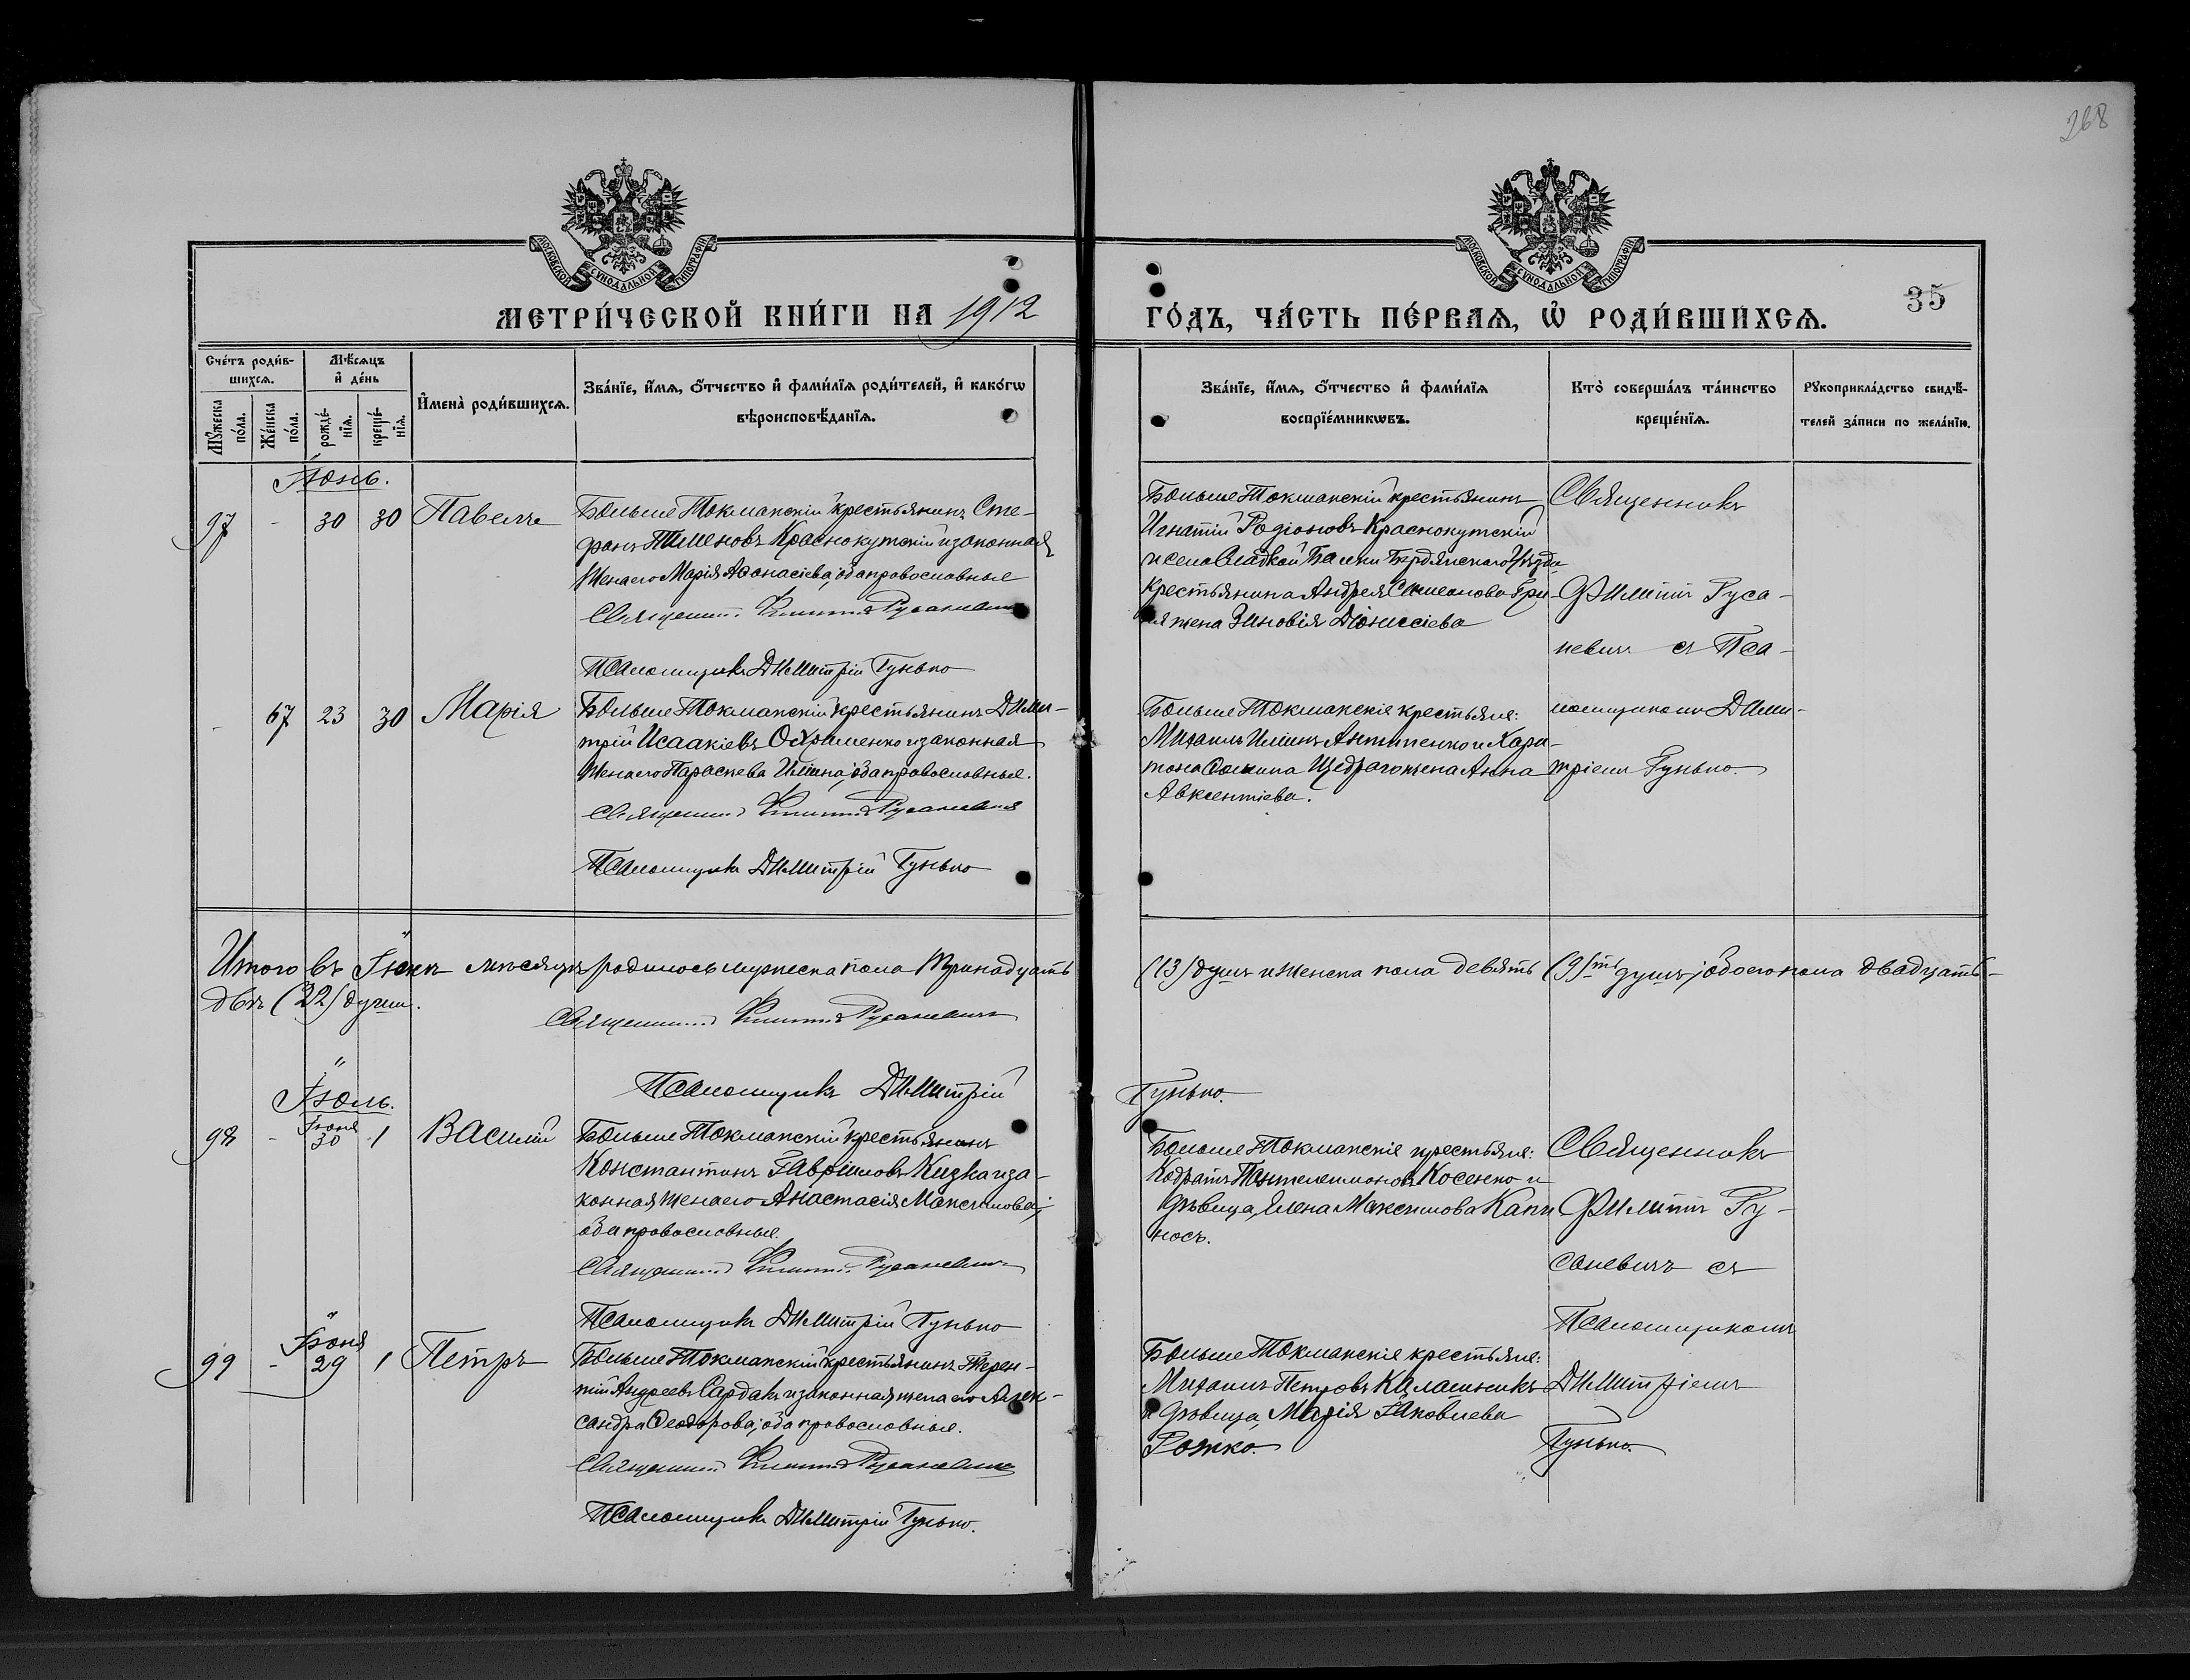 268
МОСКОВСКОЙ СѴНОДАЛЬНОЙ ТИПОГРАФІИ
МОСКОВСКОЙ СѴНОДАЛЬНОЙ ТИПОГРАФІИ
МЕТРИ́ЧЕСКОЙ КНИ́ГИ НА 1912
ГО́ДЪ, ЧА́СТЬ ПЕ́РВАѦ, Ѡ҆ РОДИ́ВШИХСѦ.
35
Сче́тъ роди́в-
шихсѧ.
Мѣ́сѧцъ
и҆ де́нь
И҆мена̀ роди́вшихсѧ.
Зва́нїе, и҆́мѧ, ѻ҆́тчество и҆ фами́лїѧ роди́телей, и҆ како́гѡ
вѣроисповѣ́данїѧ.
Мꙋ́жеска по́ла.
Же́нска по́ла.
рожде́нїѧ.
креще́нїѧ.
Зва́нїе, и҆́мѧ, ѻ҆́тчество и҆ фами́лїѧ
воспрїе́мникѡвъ.
Кто̀ соверша́лъ та́инство
креще́нїѧ.
Рꙋкоприкла́дство свидѣ́-
телей за́писи по жела́нїю.
Іюнь.
97 - 30 30 Павелъ
Больше Токмакскій крестьянинъ Сте-
фанъ Тимоновъ Краснокутскій и законная
жена его Марія Афанасіева, оба православные
Священникъ Филиппъ Русаневичъ
Псаломщикъ Димитрій Гунько
Больше Токмакскій крестьянинъ
Игнатій Родіоновъ Краснокутскій
и села Сладкой Балки Бердянскаго Уѣзда
крестьянина Андрея Симеонова Гри-
жена Зиновія Діонисіева
Священникъ
Филиппъ Руса-
невичъ съ Пса-
- 67 23 30 Марія
Больше Токмакскій крестьянинъ Дими-
трій Исаакіевъ Охрименко и законная
жена его Параскева Иліина, оба православные.
Священникъ Филиппъ Русаневичъ
Псаломщикъ Димитрій Гунько
Больше Токмакскіе крестьяне:
Михаилъ Иліинъ Антипенко и Хари-
тона Фомина Щедраго жена Анна
Авксентіева.
ломщикомъ Дими-
тріемъ Гунько.
Итого въ Іюнѣ мѣсяцѣ родилось мужеска пола тринадцать
(13) душъ и женска пола девять (9)ть душъ; обоего пола двадцать-
двѣ (22) души.
Священникъ Филиппъ Русаневичъ
Псаломщикъ Димитрій
Гунько.
Іюль.
98 - Іюня 30 1 Василій
Больше Токмакскій крестьянинъ
Константинъ Гавріиловъ Кизка и за-
конная жена его Анастасія Максимова;
оба православные.
Священникъ Филиппъ Русаневичъ
Псаломщикъ Димитрій Гунько
Больше Токмакскіе крестьяне:
Кодратъ Пантелеимоновъ Косенко и
дѣвица, Елена Максимова Капи
носъ.
Священникъ
Филиппъ Ру-
саневичъ съ
Псаломщикомъ
99 - Іюня 29 1 Петръ
Больше Токмакскій крестьянинъ Терен-
тій Андреевъ Сардакъ и законная жена его Алек-
сандра Феодорова; оба православные.
Священникъ Филиппъ Русаневичъ
Псаломщикъ Димитрій Гунько.
Больше Токмакскіе крестьяне:
Михаилъ Петровъ Калашникъ
и дѣвица, Марія Іаковлева
Рожко.
Димитріемъ
Гунько.